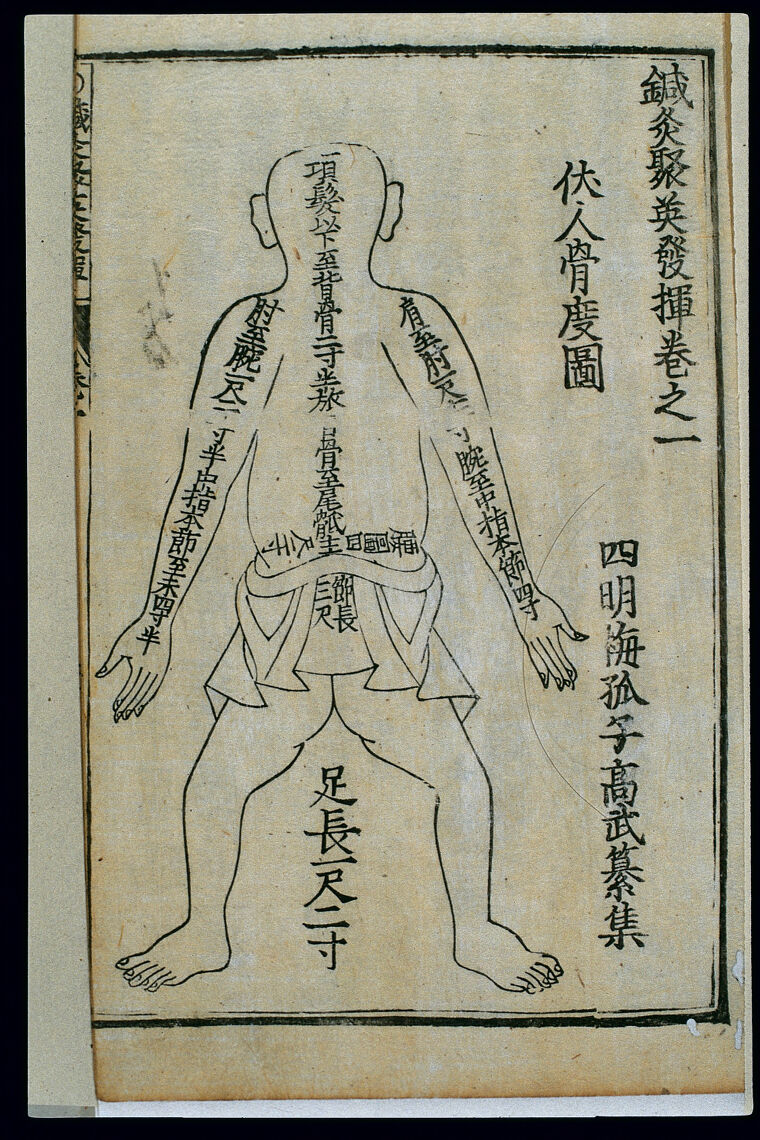 鍼灸聚英發揮卷之一
伏人骨度圖
四明梅孤子高武纂集
項髮以下至背骨二寸半
肩至肘一尺
寸
腕至中指本節四寸
肘至腕一尺二寸半
中指本節至末四寸半
骨至尾骶
節長三尺
腰圍四尺二寸
足長一尺二寸